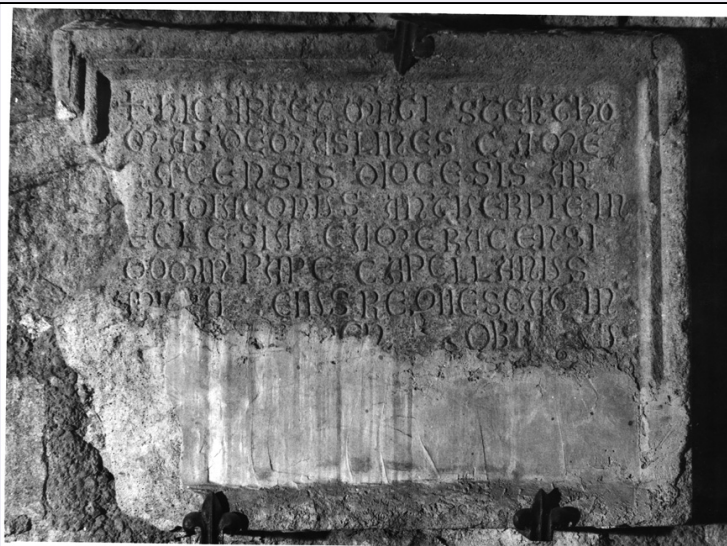 + HIC IACET MAGISTER THO
MAS DE MASLINES CAME
RACENSIS DIOCESIS AR
HIDIACONUS ANTWERPIE IN
ECLESIA CAMERACENSI
DOMINI PAPE CAPELLANUS
ANIMA EIUS REQUIESCAT IN
AMEN OBIIT